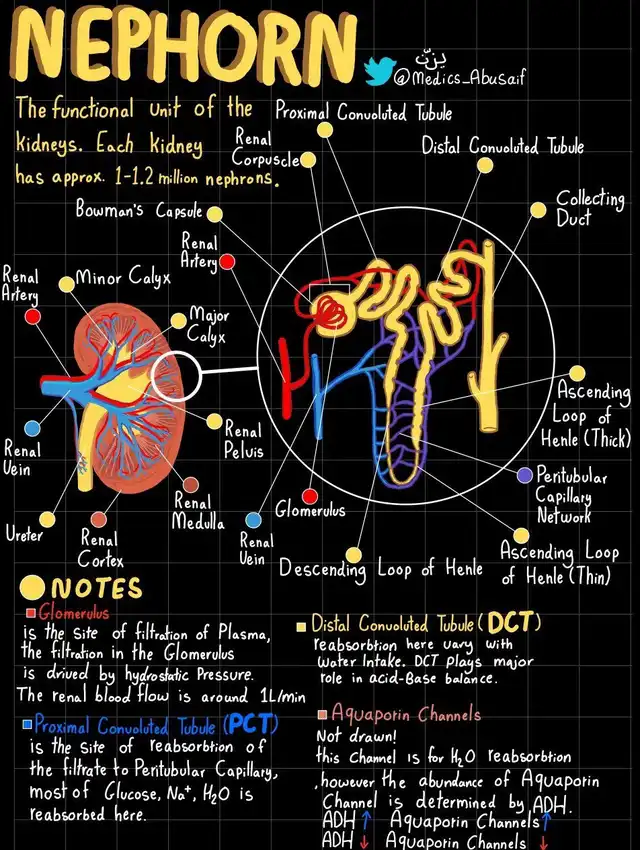 NEPHORN
يزن
@Medics_Abusaif
The functional unit of the
kidneys. Each kidney
has approx. 1-1.2 million nephrons.
Proximal Convoluted Tubule
Renal
Corpuscle
Distal Convoluted Tubule
Collecting
Duct
Bowman's Capsule
Renal
Artery
Renal
Artery
Minor Calyx
Major
Calyx
Renal
Pelvis
Renal
Vein
Renal
Medulla
Ureter
Renal
Cortex
Renal
Vein
Glomerulus
Descending Loop of Henle
Ascending
Loop of
Henle (Thick)
Peritubular
Capillary
Network
Ascending Loop
of Henle (Thin)
NOTES
Glomerulus
is the site of filtration of Plasma,
the filtration in the Glomerulus
is drived by hydrostatic Pressure.
The renal blood flow is around 1L/min
Proximal Convoluted Tubule (PCT)
is the site of reabsorbtion of
the filtrate to Peritubular Capillary,
most of Glucose, Na⁺, H₂O is
reabsorbed here.
Distal Convoluted Tubule (DCT)
reabsorbtion here vary with
Water Intake. DCT plays major
role in acid-Base balance.
Aquaporin Channels
Not drawn!
this Channel is for H₂O reabsorbtion
,however the abundance of Aquaporin
Channel is determined by ADH.
ADH ↑ Aquaporin Channels ↑
ADH ↓ Aquaporin Channels ↓